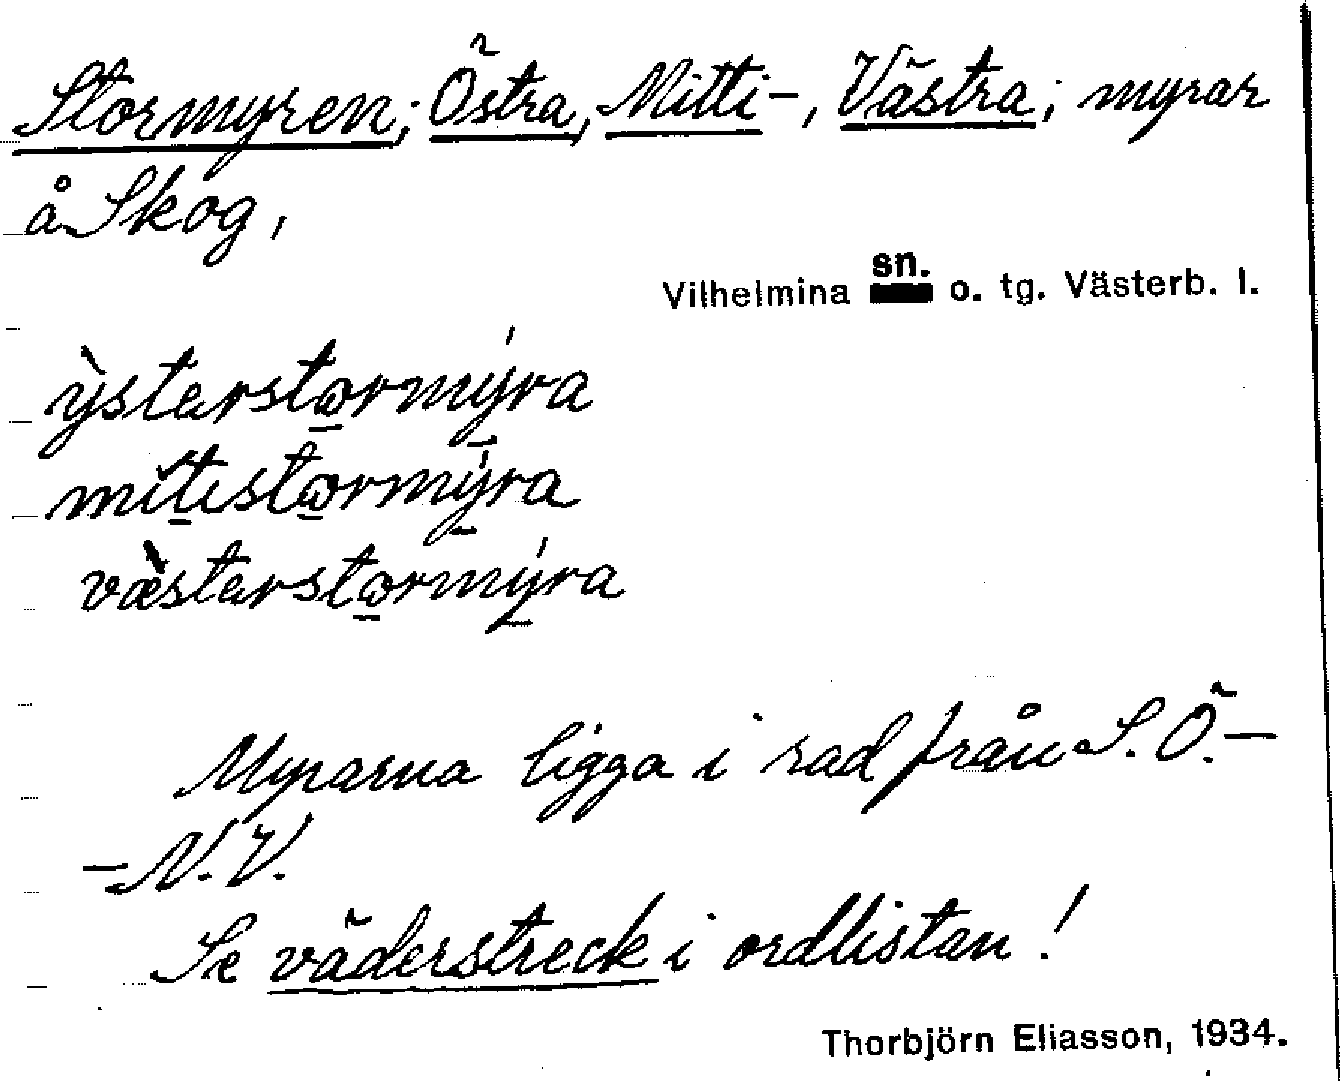 Stormyren; Östra, Mitti-, Västra; myrar
å Skog,
Vilhelmina sn. o. tg. Västerb. l.
ỳstarstormýra
mìtistormýra
væ̀starstormýra
Myrarna ligga i rad från S.Ö.–
–N.V.
Se väderstreck i ordlistan!
Thorbjörn Eliasson, 1934.